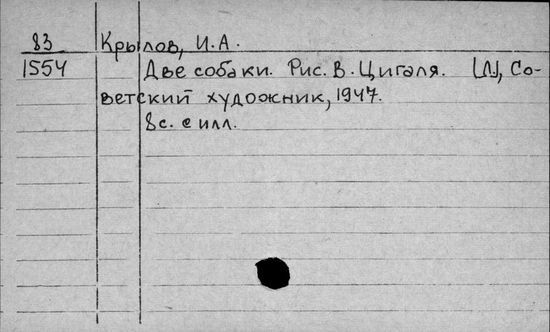 83 Крылов, И.А.
1554 Две собаки. Рис. В. Цигаля. [Л.], Со-
ветский художник, 1947.
8с. с илл.